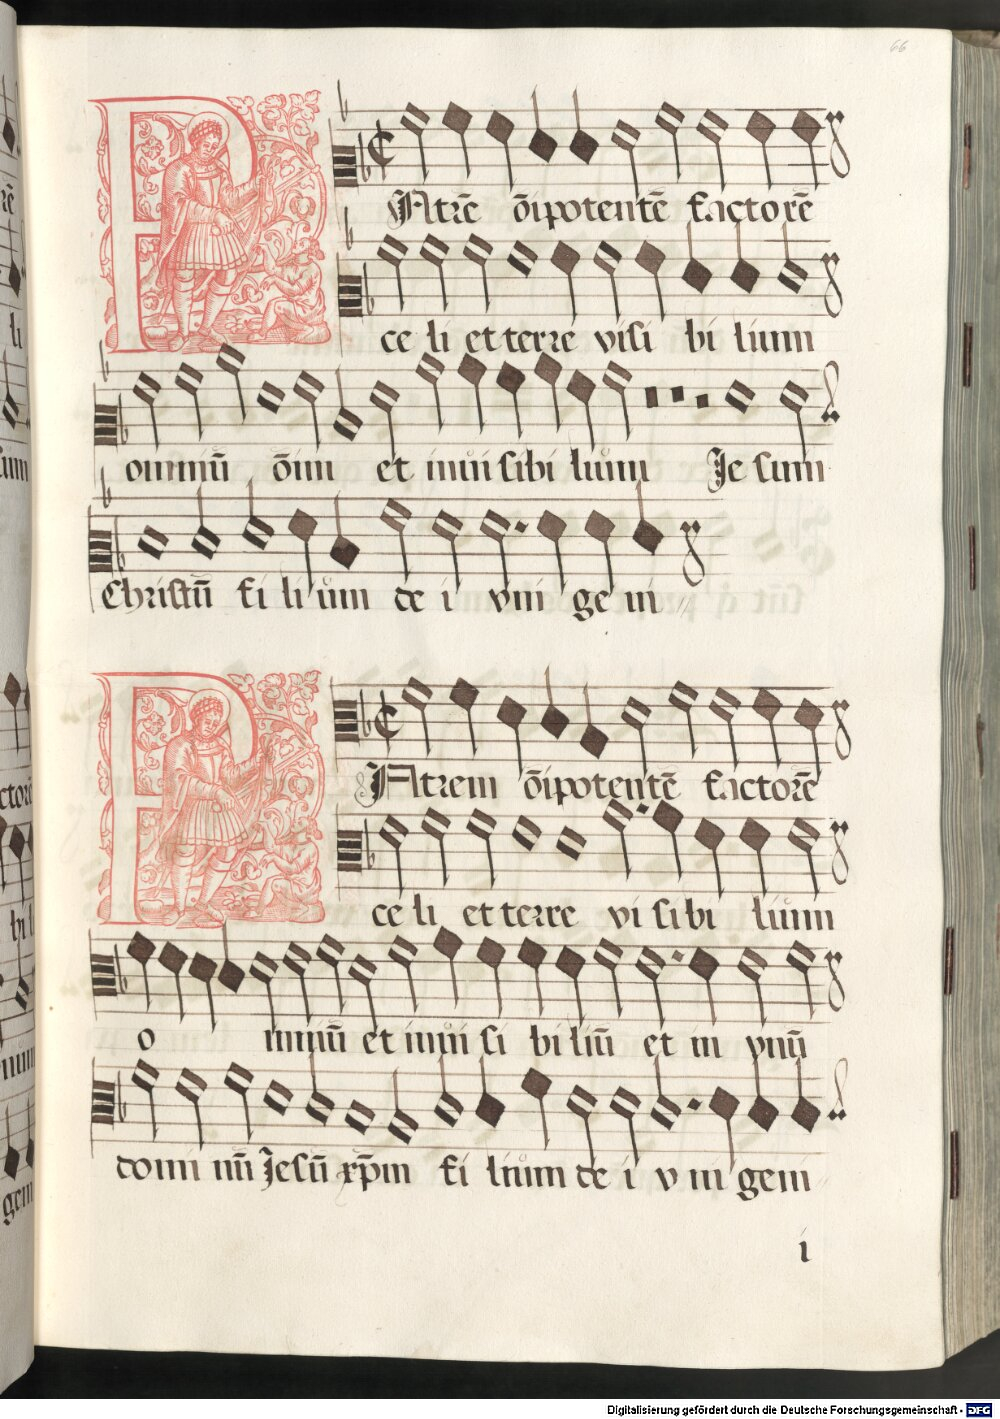 66
PAtrē ōīpotentē factorē
celi et terre visi bi lium
omniū ōīm et inuisibilium Jesum
Christū fi li um de i vni ge ni
PAtrem ōīpotentē factorē
celi et terre vi sibi lium
o mniū et inui si bi liū et in vnū
domi nū Jesū xp̄m fi lium de i v ni geni
i
Digitalisierung gefördert durch die Deutsche Forschungsgemeinschaft - DFG